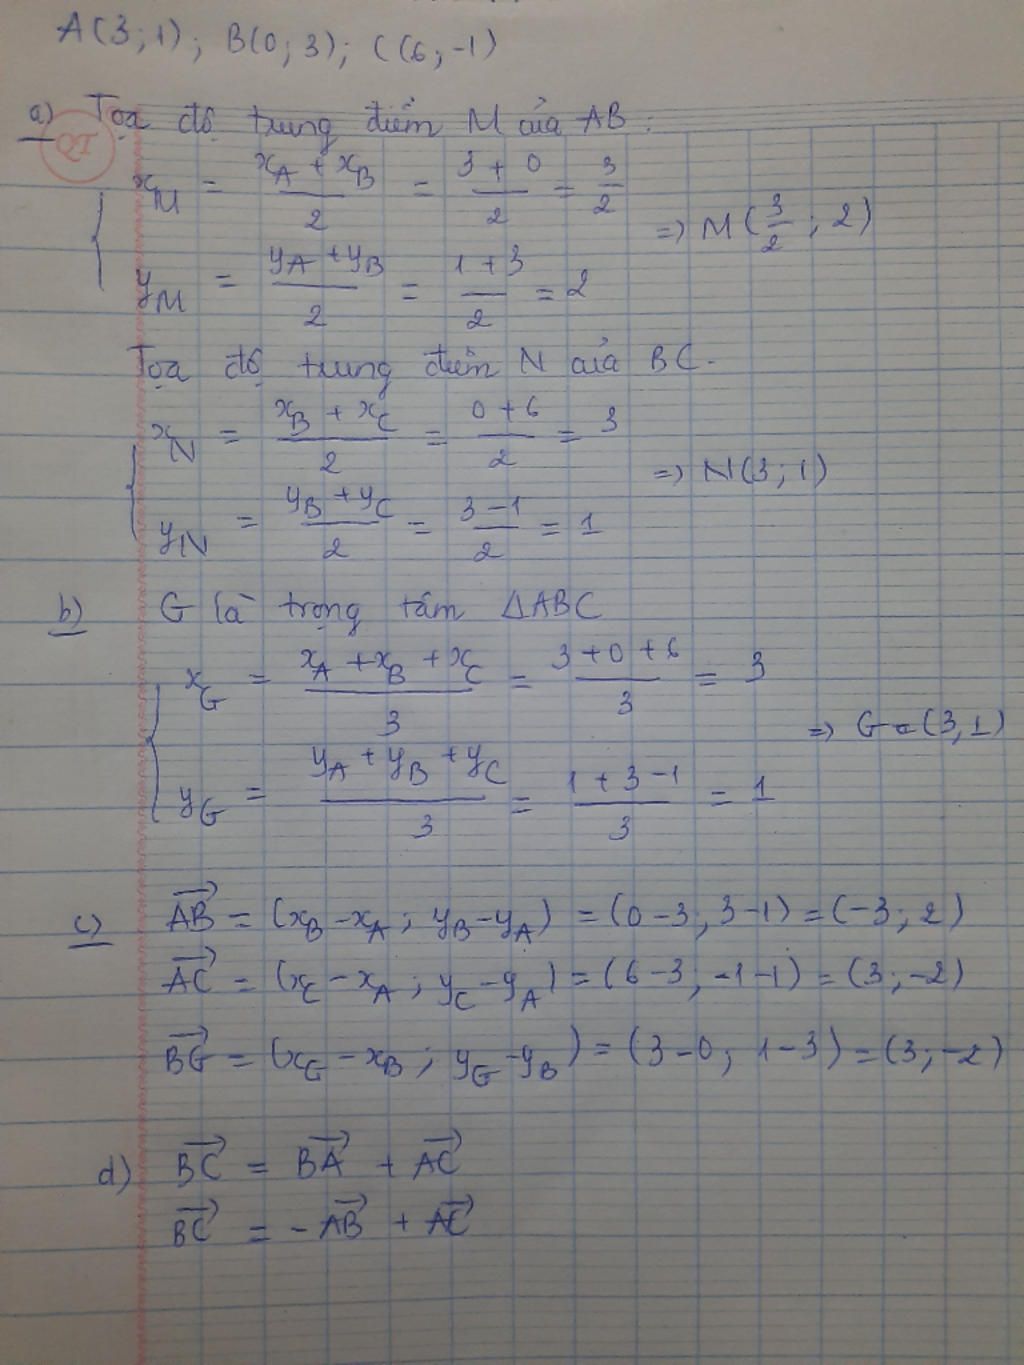 A(3;1); B(0;3); C(6;-1)
a) Tọa độ trung điểm M của AB:
x_M = (x_A + x_B)/2 = (3 + 0)/2 = 3/2
=> M(3/2; 2)
y_M = (y_A + y_B)/2 = (1 + 3)/2 = 2
Tọa độ trung điểm N của BC.
x_N = (x_B + x_C)/2 = (0 + 6)/2 = 3
=> N(3;1)
y_N = (y_B + y_C)/2 = (3 - 1)/2 = 1
b) G là trọng tâm ΔABC
x_G = (x_A + x_B + x_C)/3 = (3 + 0 + 6)/3 = 3
=> G = (3,1)
y_G = (y_A + y_B + y_C)/3 = (1 + 3 - 1)/3 = 1
c) →AB = (x_B - x_A; y_B - y_A) = (0-3; 3-1) = (-3; 2)
→AC = (x_C - x_A; y_C - y_A) = (6-3; -1-1) = (3; -2)
→BG = (x_G - x_B; y_G - y_B) = (3-0; 1-3) = (3; -2)
d) →BC = →BA + →AC
→BC = - →AB + →AC